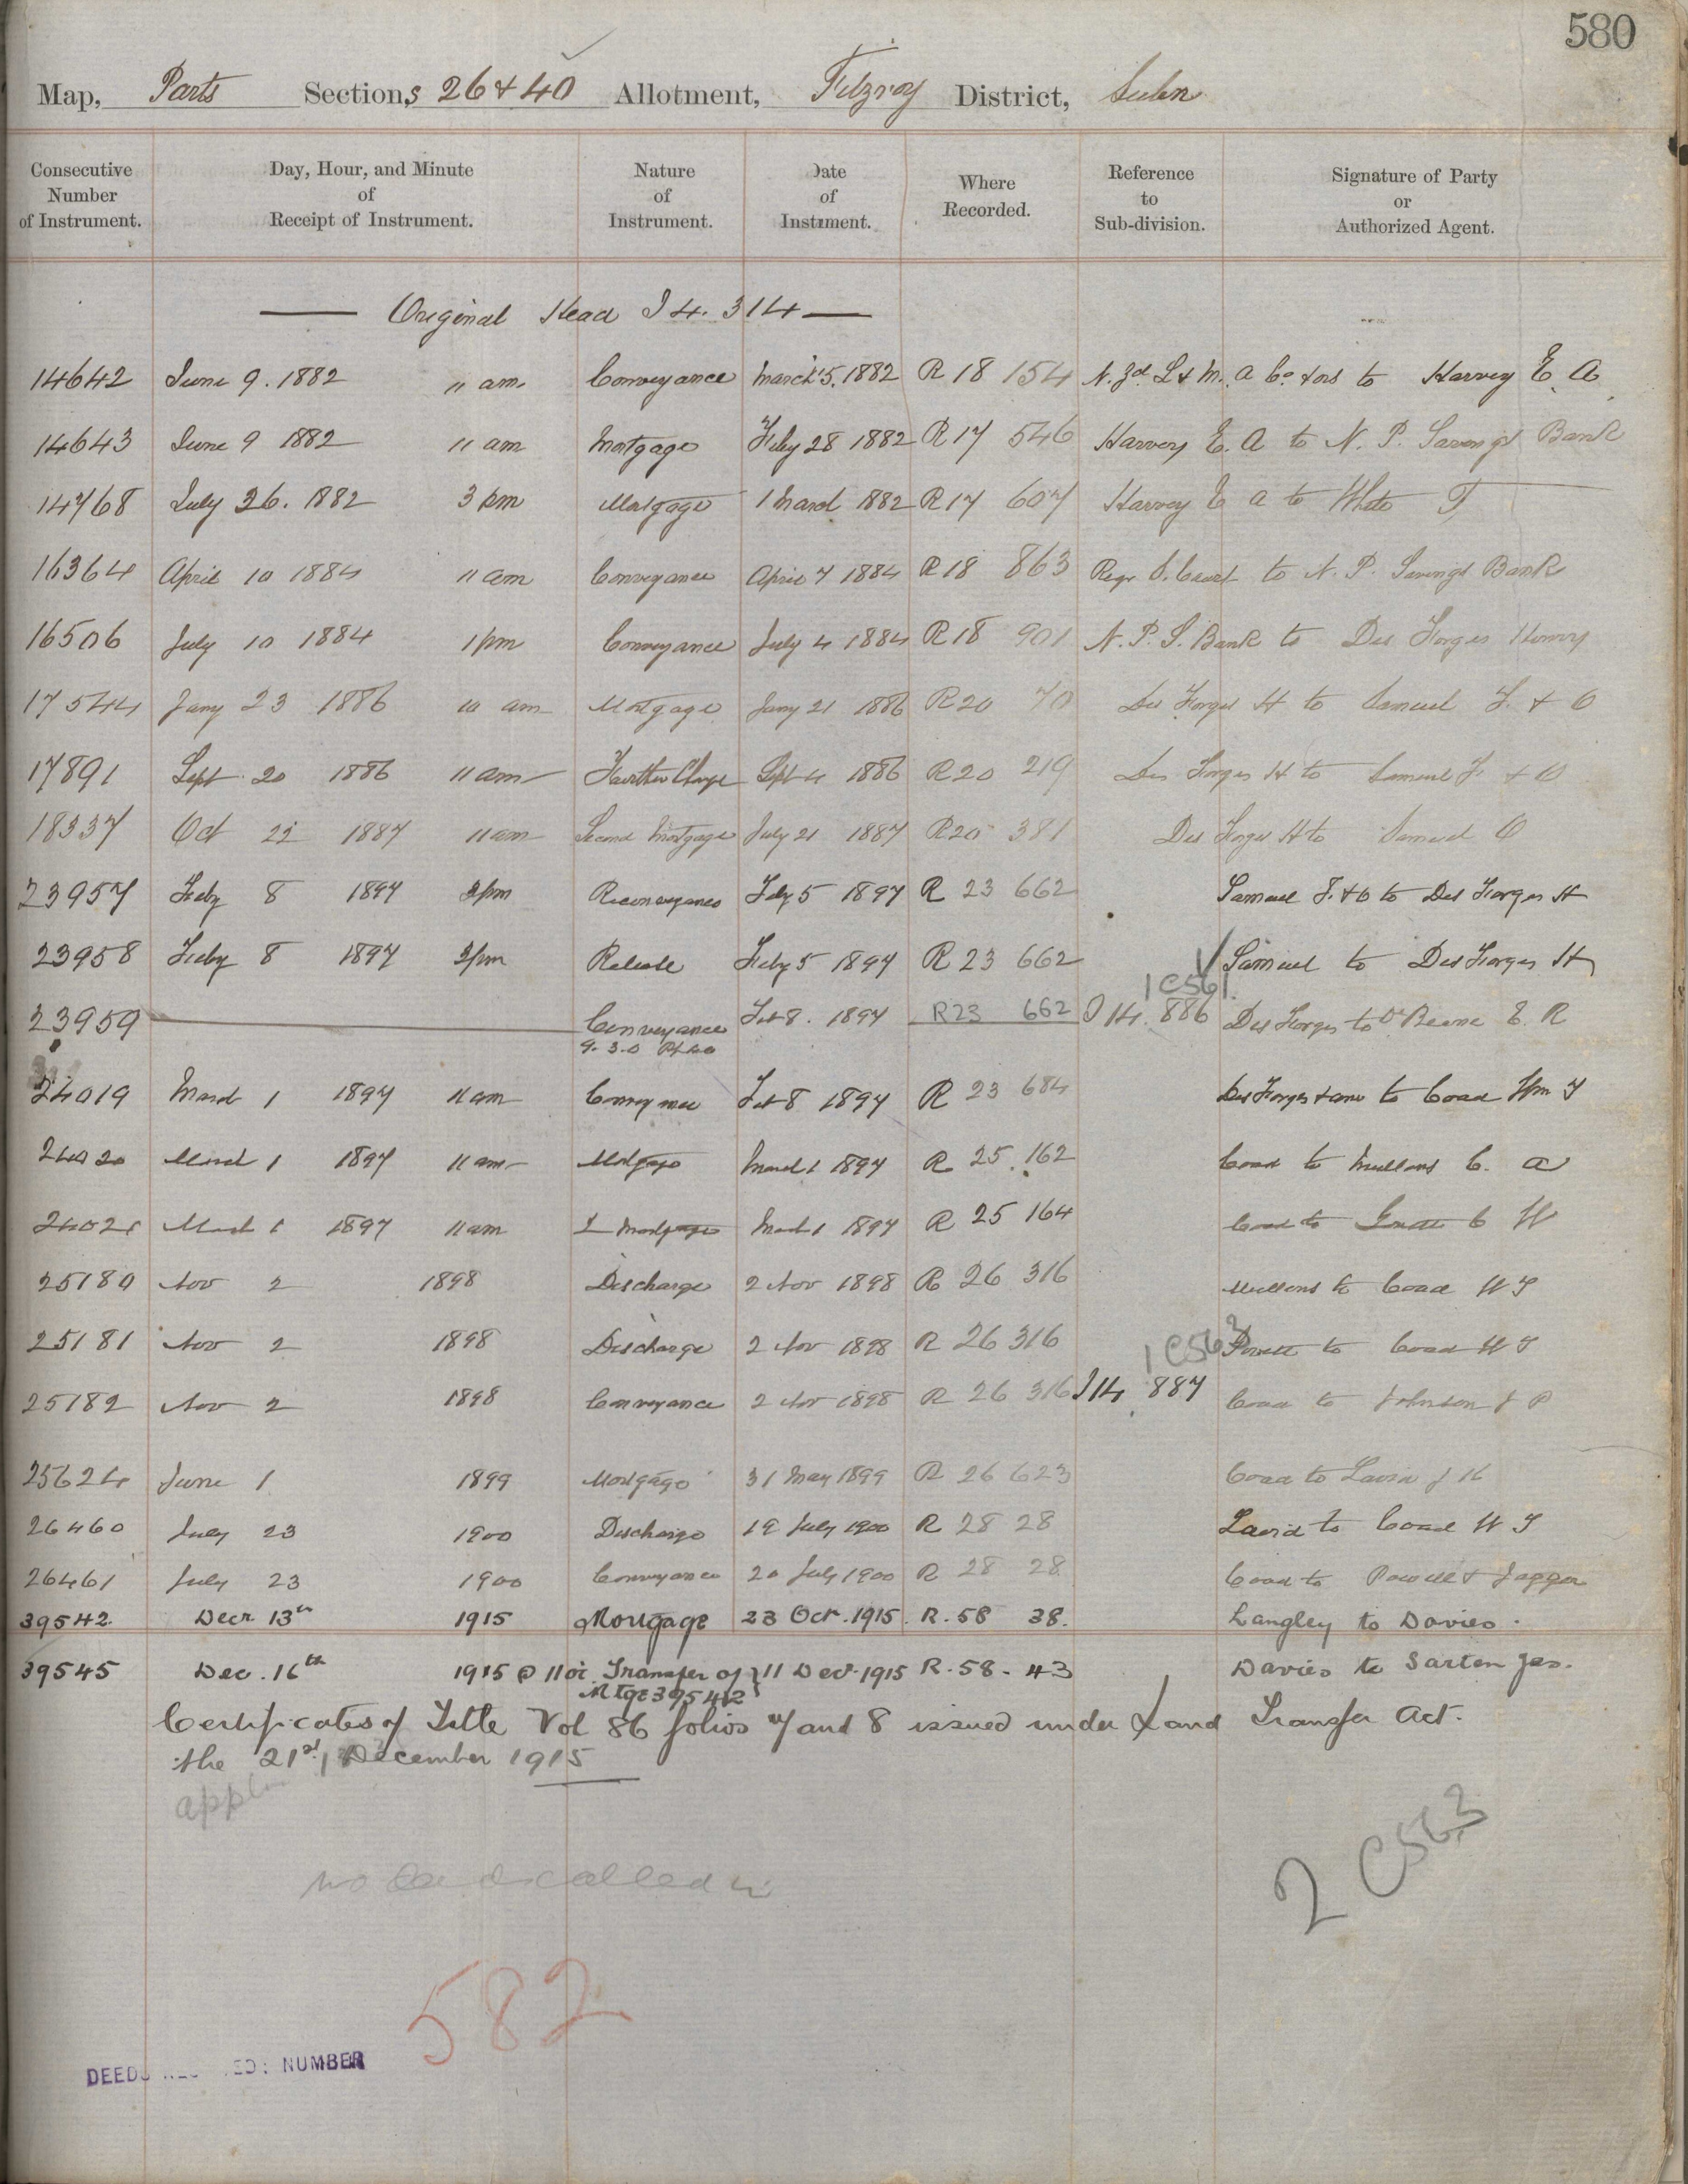 580
Map, Parts Section,s 26 & 40 Allotment, Fitzroy District, Subn
Consecutive Number of Instrument. Day, Hour, and Minute of Receipt of Instrument. Nature of Instrument. Date of Instrument. Where Recorded. Reference to Sub-division. Signature of Party or Authorized Agent.
Original Head I 4. 314
14642 June 9. 1882 11 am Conveyance March 5. 1882 R 18 154 N. Zd. L & M. A Co & ors to Harvey E. A
14643 June 9 1882 11 am Mortgage Feby 28 1882 R 17 546 Harvey E. A to N. P. Savings Bank
14768 July 26. 1882 3 pm Mortgage 1 March 1882 R 17 607 Harvey E A to White T
16364 April 10 1884 11 am Conveyance April 7 1884 R 18 863 Regr S. Court to N. P. Savings Bank
16506 July 10 1884 1 pm Conveyance July 4 1884 R 18 901 N. P. S. Bank to Des Forges Henry
17544 Jany 23 1886 10 am Mortgage Jany 21 1886 R 20 70 Des Forges H to Samuel F. & O
17891 Sept 20 1886 11 am Further Charge Sept 4 1886 R 20 219 Des Forges H to Samuel F. & O
18337 Oct 22 1887 11 am Second Mortgage July 21 1887 R 20 381 Des Forges H to Samuel O
23957 Feby 8 1897 3 pm Reconveyance Feby 5 1897 R 23 662 Samuel F. & O to Des Forges H
23958 Feby 8 1897 3 pm Release Feby 5 1897 R 23 662 Samuel to Des Forges H
1 C561.
23959 Conveyance Feb 8. 1897 R 23 662 I 14. 886 Des Forges to O'Beirne E. R
9. 3. 0
24019 March 1 1897 11 am Conveyance Feb 8 1897 R 23 684 Des Forges & anr to Coad Wm T
24020 March 1 1897 11 am Mortgage March 1 1897 R 25. 162 Coad to Mullens C. A
24021 March 1 1897 11 am 2 Mortgage March 1 1897 R 25 164 Coad to C W
25180 Nov 2 1898 Discharge 2 Nov 1898 R 26 316 Mullens to Coad W T
25181 Nov 2 1898 Discharge 2 Nov 1898 R 26 316 to Coad W T
1 C562
25182 Nov 2 1898 Conveyance 2 Nov 1898 R 26 316 I 14. 887 Coad to Johnson J P
25624 June 1 1899 Mortgage 31 May 1899 R 26 623 Coad to
26460 July 23 1900 Discharge 19 July 1900 R 28 28 to Coad W T
26461 July 23 1900 Conveyance 20 July 1900 R 28 28 Coad to Powell & Jagger
39542. Decr 13th 1915 Mortgage 23 Oct. 1915. R. 58 38. Langley to Davies.
39545 Dec. 16th 1915 @ 11 oc Transfer of 11 Decr. 1915 R. 58 - 43 Davies to Sarten Jas.
Mtge 39542
Certificates of Title Vol 86 folios 7 and 8 issued under Land Transfer Act.
the 21st December 1915
2 C563
582
DEEDS NUMBER